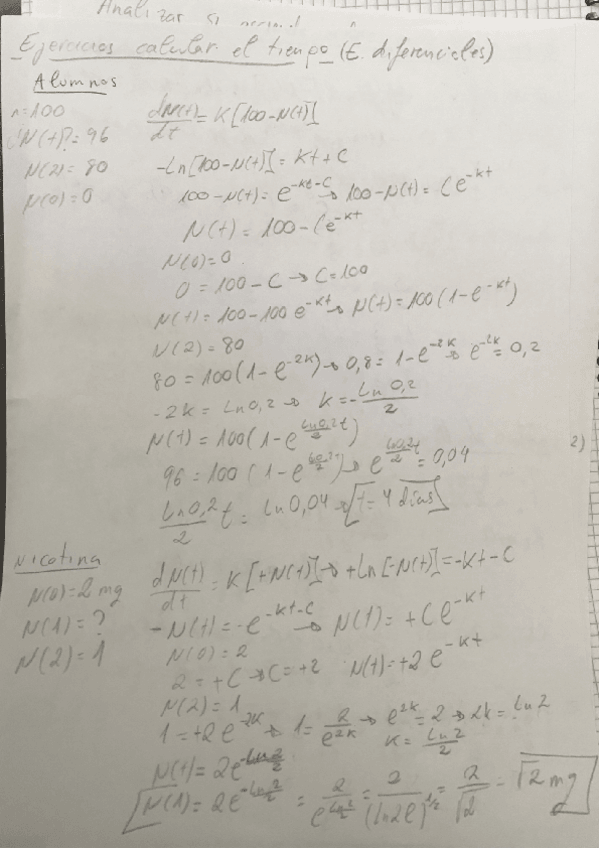 Analizar si
Ejercicios calcular el tiempo (E. diferenciales)
Alumnos
n=100
¿N(t)?=96
N(2)=80
N(0)=0
dN(t)/dt = K[100-N(t)]
-Ln[100-N(t)] = Kt+C
100-N(t) = e^-kt-C → 100-N(t) = Ce^-kt
N(t) = 100-Ce^-kt
N(0)=0
0 = 100-C → C=100
N(t) = 100-100 e^-kt → N(t) = 100(1-e^-kt)
N(2) = 80
80 = 100(1-e^-2k) → 0,8 = 1-e^-2k → e^-2k = 0,2
-2k = Ln 0,2 → k = -Ln 0,2/2
N(t) = 100(1-e^Ln0,2/2 t)
2)
96 = 100(1-e^Ln0,2/2 t) → e^Ln0,2/2 t = 0,04
Ln 0,2/2 t = Ln 0,04 → t = 4 días
Nicotina
N(0)=2 mg
N(1)=?
N(2)=1
dN(t)/dt = K[+N(t)] → +Ln[-N(t)] = -Kt-C
-N(t) = -e^-kt-C → N(t) = +Ce^-kt
N(0) = 2
2 = +C → C=+2 N(t)=+2e^-kt
N(2) = 1
1 = +2e^-2k → 1 = 2/e^2k → e^2k = 2 → 2k = Ln 2
k = Ln 2/2
N(t) = 2e^-Ln 2/2
N(1) = 2e^-Ln 2/2 = 2/e^Ln2/2 = 2/(Ln2e)^1/2 = 2/√2 = √2 mg